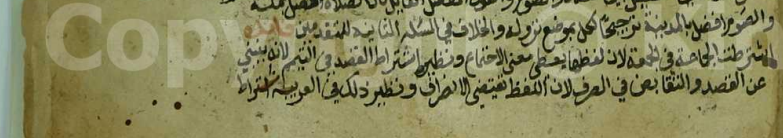 والصوم افضل بالمدينة ترجيحا لكل بموضع نزوله والخلاف في المسئلة الثانية للمتقدمين فائدة
اشترطت الجماعة في الجمعة لان لفظها يعطى معنى الاجتماع ونظيره اشتراط القصد في التيمم لانه ينبي
عن القصد والتقابض في الصرف لان اللفظ يقتضي الانصراف ونظير ذلك في العربية اشتراط